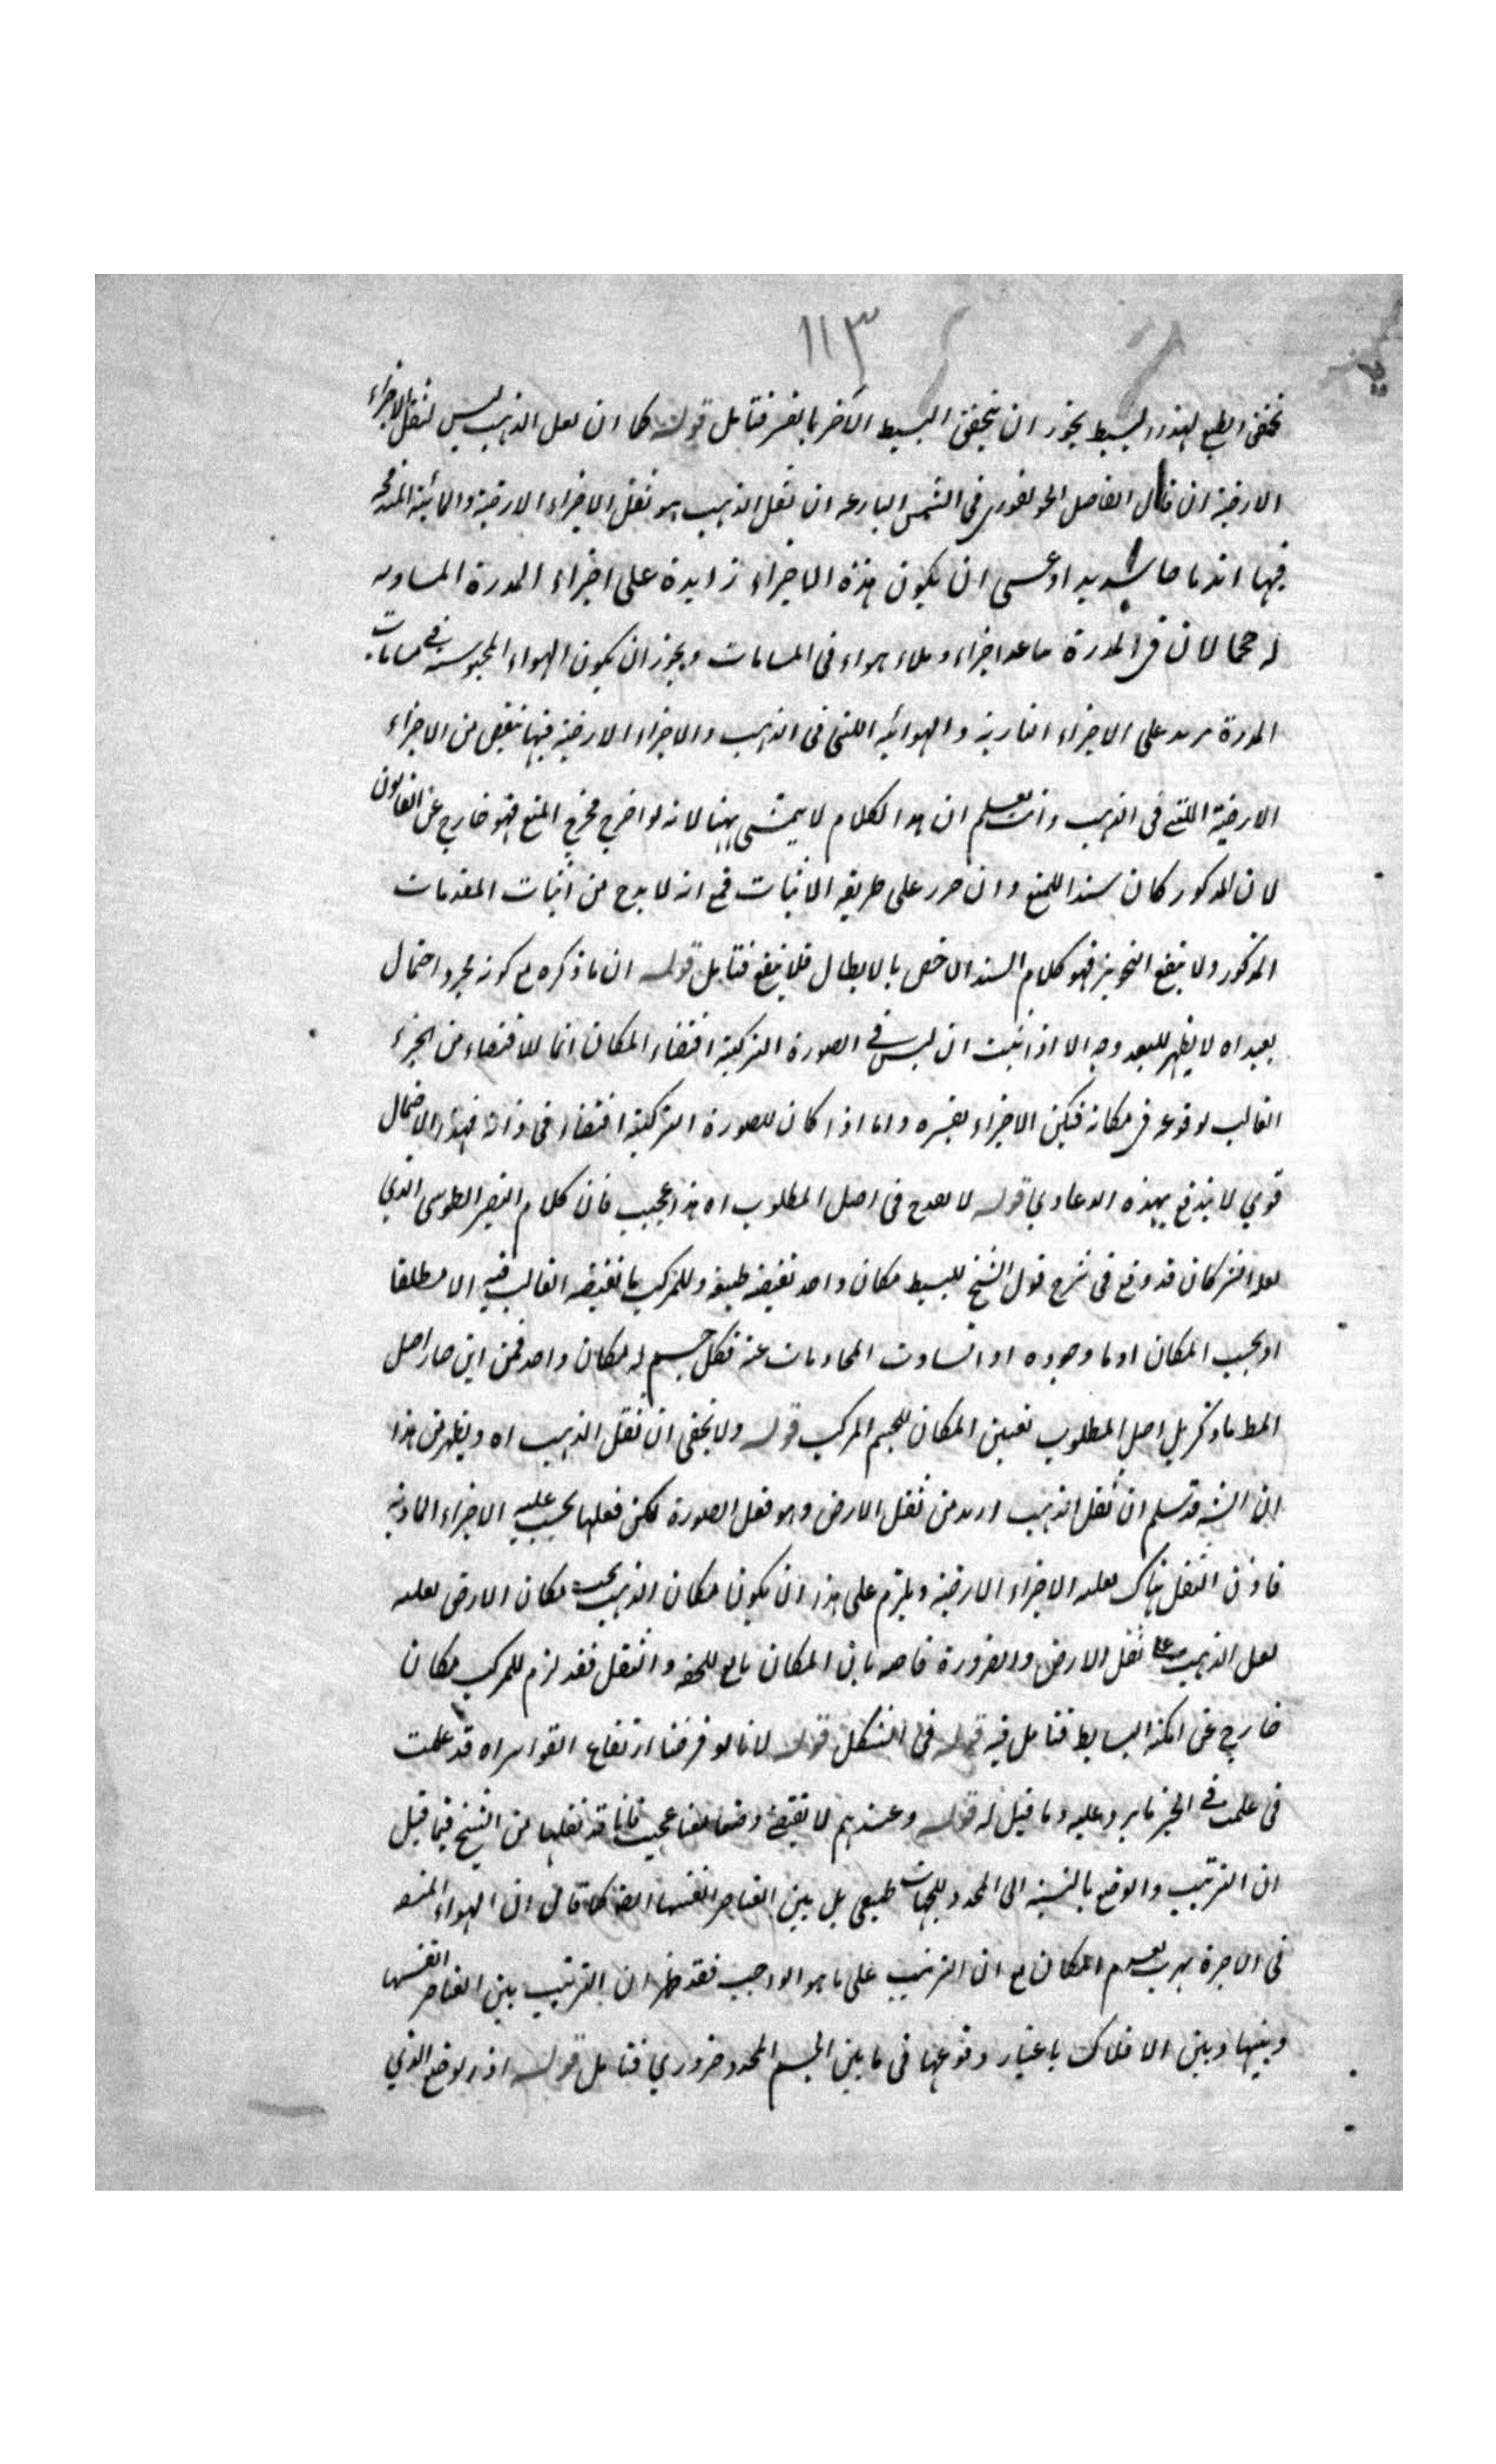 ١١٣
تحقق الطبع لهذا البسيط يجوز ان يتحقق البسيط الآخر بالقسر فتامل قوله كما ان ثقل الذهب ليس لثقل الاجزاء
الارضية ان قال الفاضل الجونفوري في الشمس البازعه ان ثقل الذهب هو ثقل الاجزاء الارضية والمائية المندمجه
فيها اندماجا شديدا وعسى ان يكون هذه الاجزاء زايدة على اجزاء المدرة المساويه
له حجما لان في المدرة ماعدا اجزاء وملاء هواء في المسامات ويجوز ان يكون الهواء المحبوسة في مسامات
المدرة يزيد على الاجزاء النارية والهوائية اللتى في الذهب والاجزاء الارضية فيها ينقص من الاجزاء
الارضية اللتى في الذهب وانت تعلم ان هذا الكلام لا يتمشى ههنا لانه لو اخرج مخرج المنع فهو خارج عن القانون
لان المذكور كان سندا للمنع وان حرر على طريقه الاثبات فمع انه لا بدح من اثبات المقدمات
المذكور ولا ينفع التجويز فهو كلام السند الاخص بالابطال فلا ينفع فتامل قوله ان ما ذكره مع كونه مجرد احتمال
بعيد اه لا يظهر للبعد وجه الا اذا ثبت ان ليس في الصورة التركيبية اقتضاء المكان انما الاقتضاء من الجزء
الغالب لوقوعه في مكانه فيكن الاجزاء بقسره واما اذا كان للصورة التركيبية اقتضاء في ذاته فهذا الاحتمال
قوي لا يندفع بهذه الدعاوي قوله لا يقدح في اصل المطلوب اه هذا عجيب فان كلام النصير الطوسى الذي
نقله الشر كان قد وقع في شرح قول الشيخ للبسيط مكان واحد تقتضيه طبيعة وللمركب ما تقتضيه الغالب فيه الا مطلقا
او بحسب المكان او ما وجوده اذا تساوت المجاذبات عنه فكل جسم له مكان واحد فمن اين صار اصل
المط ماذكر بل اصل المطلوب تعيين المكان للجسم المركب قوله ولا يخفى ان ثقل الذهب اه ويظهر من هذا
ان الشه قد تسلم ان ثقل الذهب ازيد من ثقل الارض وهو فعل الصورة لكن فعلها بحسب غلبة الاجزاء المادية
فاذن الثقل هناك لغلبة الاجزاء الارضية ويلزم على هذا ان يكون مكان الذهب تحت مكان الارض لغلبه
ثقل الذهب على ثقل الارض والضرورة قاضيه بان المكان تابع للخفة والثقل فقد لزم للمركب مكان
خارج عن امكنة البسايط فتامل فيه قوله في الشكل قوله لانا لو فرضنا ارتفاع القواسر اه قد علمت
في علمت في الحيز ما يرد عليه وما قيل له قوله وعندهم لا تقتضي وضعا معينا عجيب فانا قد نقلها من الشيخ فيما قيل
ان الترتيب والوضع بالنسبة الى المحدد للجهات طبيعي بل بين العناصر انفسها ايضا كما قال ان الهواء المنبو
في الاجرة يهرب لعدم المكان مع ان الترتيب على ما هو الواجب فقد ظهر ان الترتيب بين العناصر انفسها
وبينها وبين الافلاك باعتبار وقوعها في ما بين الجسم المحدد ضروري فتامل قوله اذ الوضع الذي